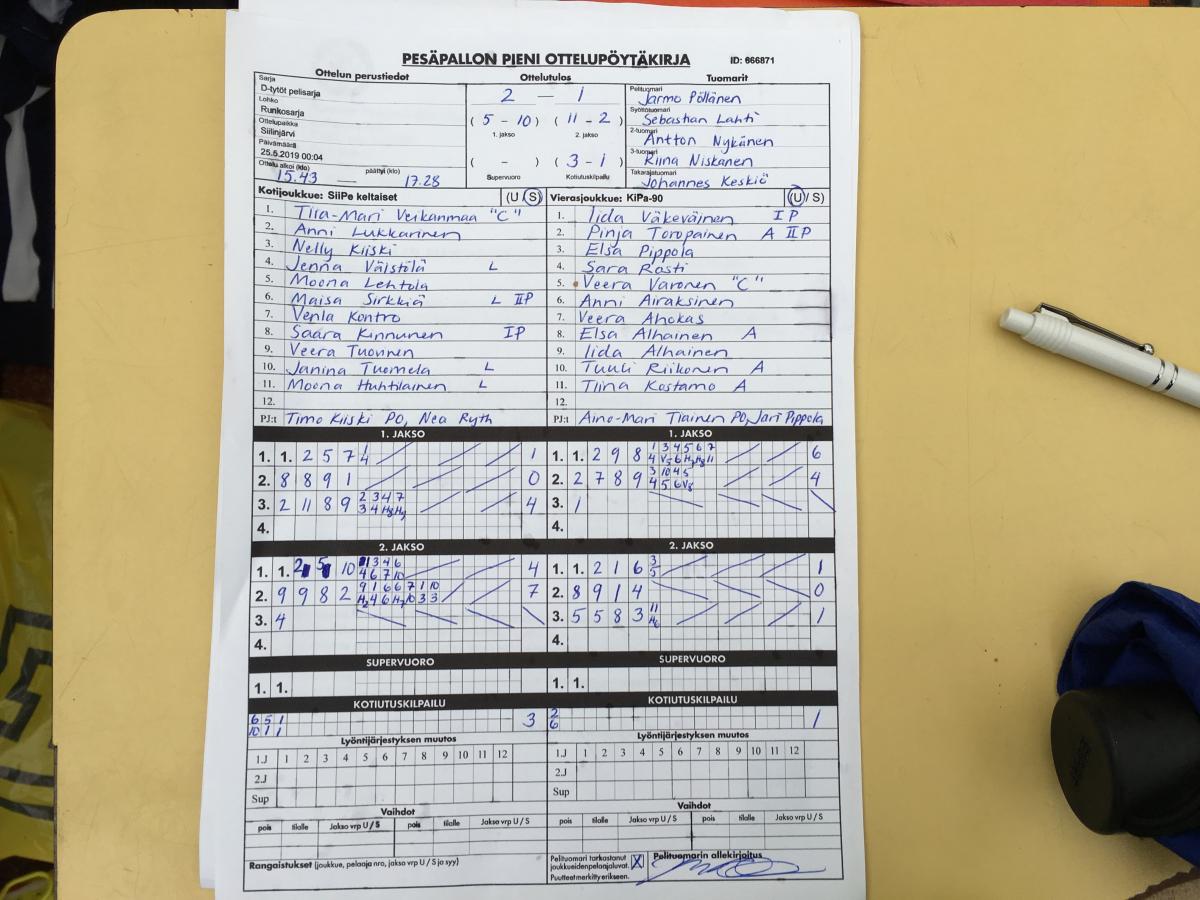 PESÄPALLON PIENI OTTELUPÖYTÄKIRJA ID: 666871
Ottelun perustiedot Ottelutulos Tuomarit
Sarja
D-tytöt pelisarja
Lohko
Runkosarja
Ottelupaikka
Siilinjärvi
Päivämäärä
25.5.2019 00:04
Ottelu alkoi (klo) päättyi (klo)
15.43 — 17.28
2 — 1
( 5 - 10 ) ( 11 - 2 )
1. jakso 2. jakso
( - ) ( 3 - 1 )
Supervuoro Kotiutuskilpailu
Pelituomari
Jarmo Pöllänen
Syöttötuomari
Sebastian Lahti
2-tuomari
Antton Nykänen
3-tuomari
Riina Niskanen
Takarajatuomari
Johannes Keskiö
Kotijoukkue: SiiPe keltaiset (U / S)
1. Tiia-Mari Veikanmaa "C"
2. Anni Lukkarinen
3. Nelly Kiiski
4. Jenna Väistölä L
5. Moona Lehtola
6. Maisa Sirkkiä L IIP
7. Venla Kontro
8. Saara Kinnunen IP
9. Veera Tuovinen
10. Janina Tuomela L
11. Moona Huhtilainen L
12.
PJ:t Timo Kiiski PO, Nea Ryth
Vierasjoukkue: KiPa-90 (U / S)
1. Iida Väkeväinen IP
2. Pinja Toropainen A IIP
3. Elsa Pippola
4. Sara Rasti
5. Veera Varonen "C"
6. Anni Airaksinen
7. Veera Ahokas
8. Elsa Alhainen A
9. Iida Alhainen
10. Tuuli Riikonen A
11. Tiina Kostamo A
12.
PJ:t Aino-Mari Tiainen PO, Jari Pippola
1. JAKSO
1. 1. 2 5 7 1 4 1
2. 8 8 9 1 0
3. 2 11 8 9 2 3 4 7 3 4 H8 H9 4
4.
1. JAKSO
1. 1. 2 9 8 1 3 4 5 6 7 6
2. 2 7 8 9 3 10 4 5 4 5 6 V8 4
3. 1
4.
2. JAKSO
1. 1. 2 5 10 1 3 4 6 4 6 7 10 4
2. 9 9 8 2 9 1 6 6 7 1 10 H2 4 6 H7 10 3 3 7
3. 4
4.
2. JAKSO
1. 1. 2 1 6 3 5 1
2. 8 9 1 4 0
3. 5 5 8 3 11 H6 1
4.
SUPERVUORO SUPERVUORO
1. 1. 1. 1.
KOTIUTUSKILPAILU KOTIUTUSKILPAILU
6 5 1 3 2 1
10 1 1 6
Lyöntijärjestyksen muutos Lyöntijärjestyksen muutos
1.J 1 2 3 4 5 6 7 8 9 10 11 12 1.J 1 2 3 4 5 6 7 8 9 10 11 12
2.J 2.J
Sup Sup
Vaihdot Vaihdot
pois tilalle Jakso vrp U / S pois tilalle Jakso vrp U / S pois tilalle Jakso vrp U / S pois tilalle Jakso vrp U / S
Rangaistukset (joukkue, pelaaja nro, jakso vrp U / S ja syy)
Pelituomari tarkastanut
joukkueiden pelaajaluvat. X
Puutteet merkitty erikseen.
Pelituomarin allekirjoitus